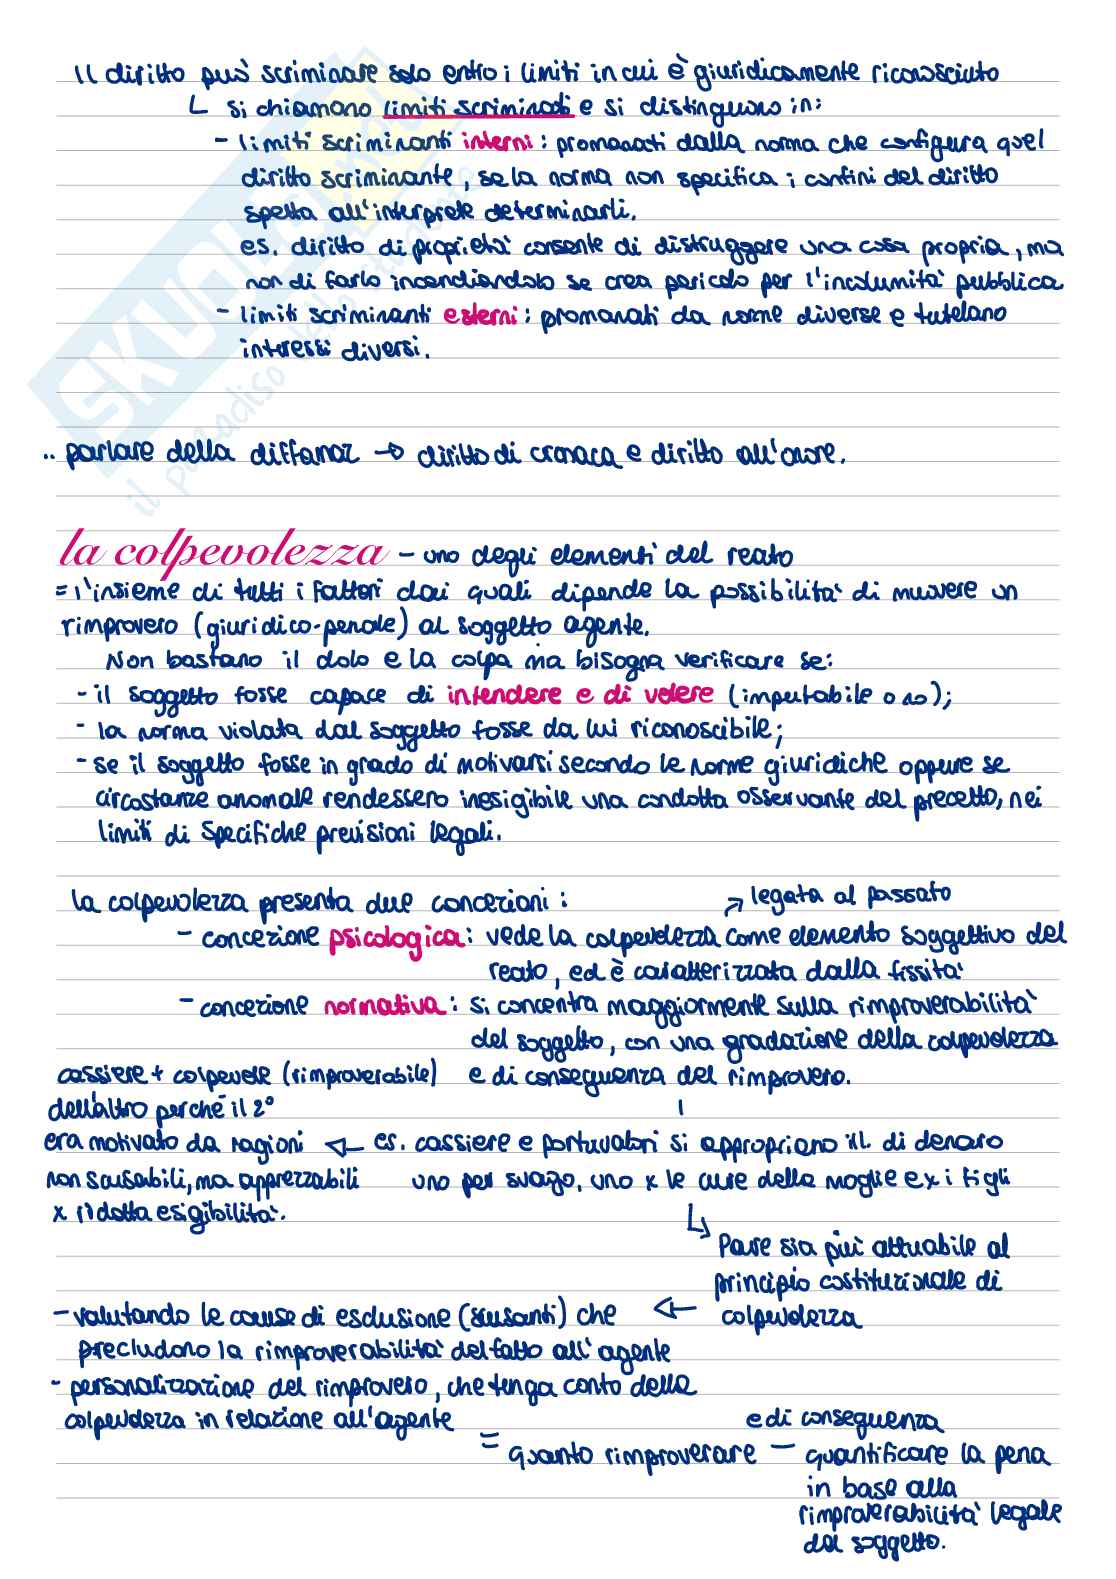 Il diritto può scriminare solo entro i limiti in cui è giuridicamente riconosciuto
si chiamano limiti scriminati e si distinguono in:
- limiti scriminanti interni: promanati dalla norma che configura quel
diritto scriminante, se la norma non specifica i confini del diritto
spetta all'interprete determinarli.
es. diritto di proprietà consente di distruggere una cosa propria, ma
non di farlo incendiandolo se crea pericolo per l'incolumità pubblica
- limiti scriminanti esterni: promanati da norme diverse e tutelano
interessi diversi.
.. parlare della diffamaz → diritto di cronaca e diritto all'onore.
la colpevolezza - uno degli elementi del reato
= l'insieme di tutti i fattori dai quali dipende la possibilità di muovere un
rimprovero (giuridico-penale) al soggetto agente.
Non bastano il dolo e la colpa ma bisogna verificare se:
- il soggetto fosse capace di intendere e di volere (imputabile o no);
- la norma violata dal soggetto fosse da lui riconoscibile;
- se il soggetto fosse in grado di motivarsi secondo le norme giuridiche oppure se
circostanze anomale rendessero inesigibile una condotta osservante del precetto, nei
limiti di specifiche previsioni legali.
la colpevolezza presenta due concezioni:
↗ legata al passato
- concezione psicologica: vede la colpevolezza come elemento soggettivo del
reato, ed è caratterizzata dalla fissità
- concezione normativa: si concentra maggiormente sulla rimproverabilità
del soggetto, con una gradazione della colpevolezza
e di conseguenza del rimprovero.
es. cassiere e portavalori si appropriano ill. di denaro
uno per svago, uno x le cure della moglie e x i figli
cassiere + colpevole (rimproverabile)
dell'altro perché il 2°
era motivato da ragioni ←
non scusabili, ma apprezzabili
x ridotta esigibilità.
Pare sia più attuabile al
principio costituzionale di
colpevolezza
- valutando le cause di esclusione (scusanti) che ←
precludono la rimproverabilità del fatto all'agente
- personalizzazione del rimprovero, che tenga conto della
colpevolezza in relazione all'agente
= quanto rimproverare -
e di conseguenza
quantificare la pena
in base alla
rimproverabilità legale
del soggetto.
SKUOLA.net
il paradiso dello studente